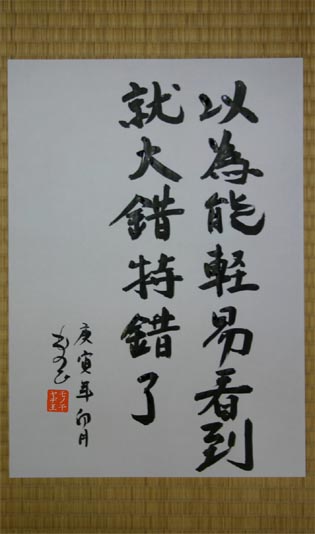 以為能軽易看到
就大錯特錯了
庚寅年卯月